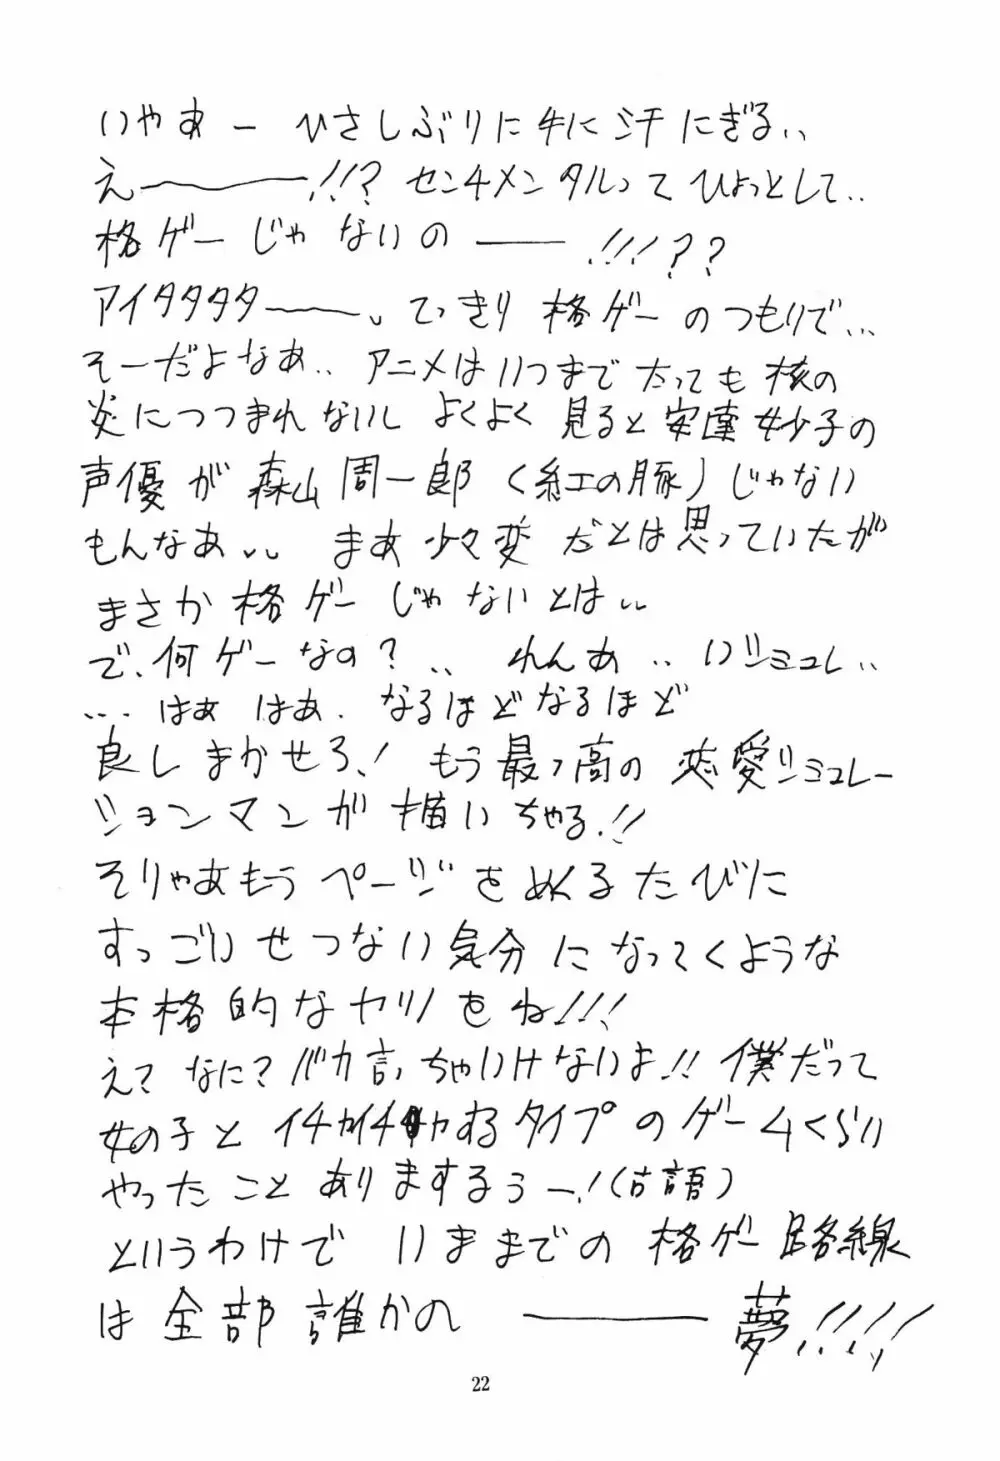 いやあー ひさしぶりに手に汗にぎる、、
え――!!? センチメンタルってひょっとして..
格ゲーじゃないの――!!!??
アイタタタタ――、、てっきり格ゲーのつもりで...
そーだよなあ.. アニメはいつまでたっても核の
炎につつまれないし よくよく見ると安達妙子の
声優が森山周一郎(紅の豚)じゃない
もんなあ、、 まあ少々変だとは思っていたが
まさか格ゲーじゃないとは、、
で、何ゲーなの? .. れんあ .. いシミュレ..
... はぁ はぁ. なるほどなるほど
良しまかせろ! もう最っ高の恋愛シミュレー
ションマンガ描いちゃる!!
そりゃあもうページをめくるたびに
すっごいせつない気分になってくような
本格的なヤツをね!!!
え? なに? バカ言っちゃいけないよ!! 僕だって
女の子とイチャイチャするタイプのゲームくらい
やったことありまするぅー!(古語)
というわけでいままでの格ゲー路線
は全部誰かの――夢!!!!
22